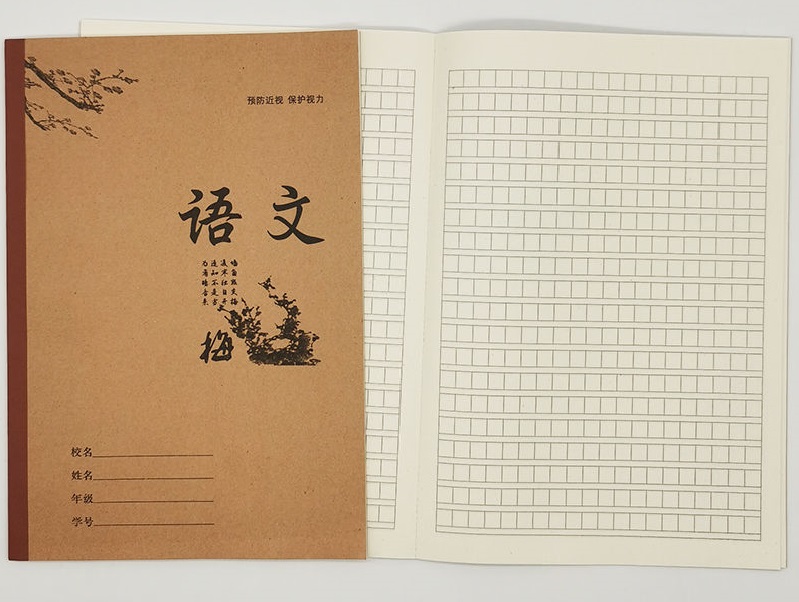 预防近视 保护视力
语文
墙角数枝梅
凌寒独自开
遥知不是雪
为有暗香来
梅
校名
姓名
年级
学号